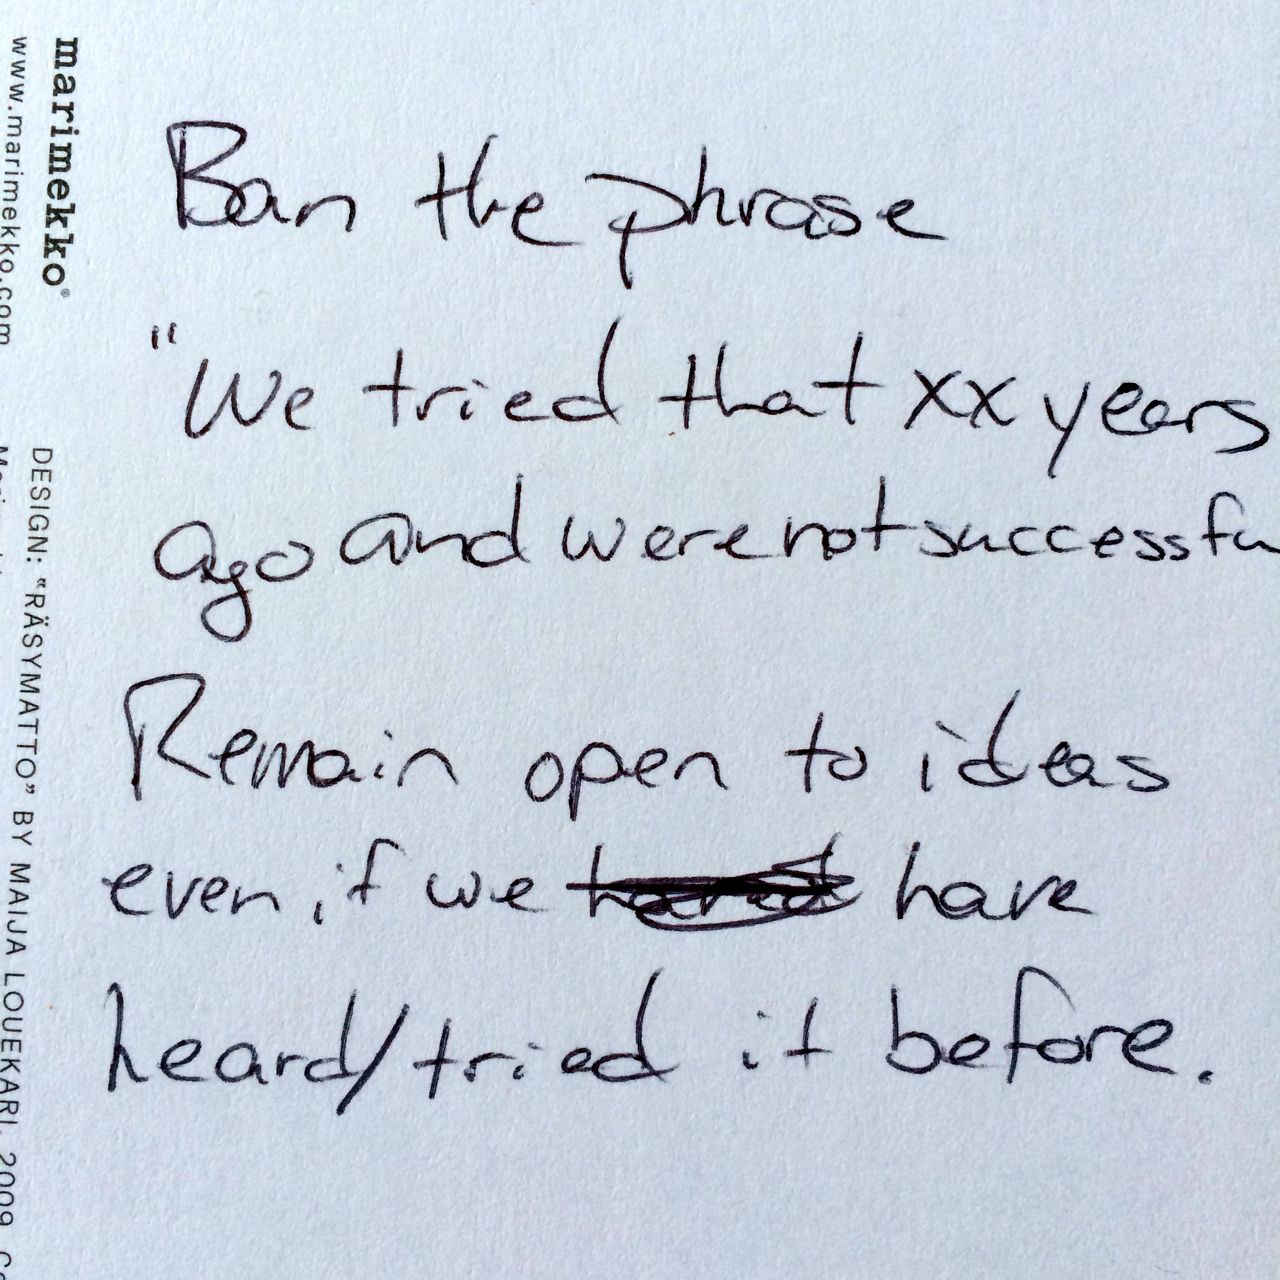 Ban the phrase
"We tried that xx years
ago and were not successfu
Remain open to ideas
even if we have
heard/tried it before.
marimekko®
www.marimekko.com
DESIGN: "RÄSYMATTO" BY MAIJA LOUEKARI, 2009